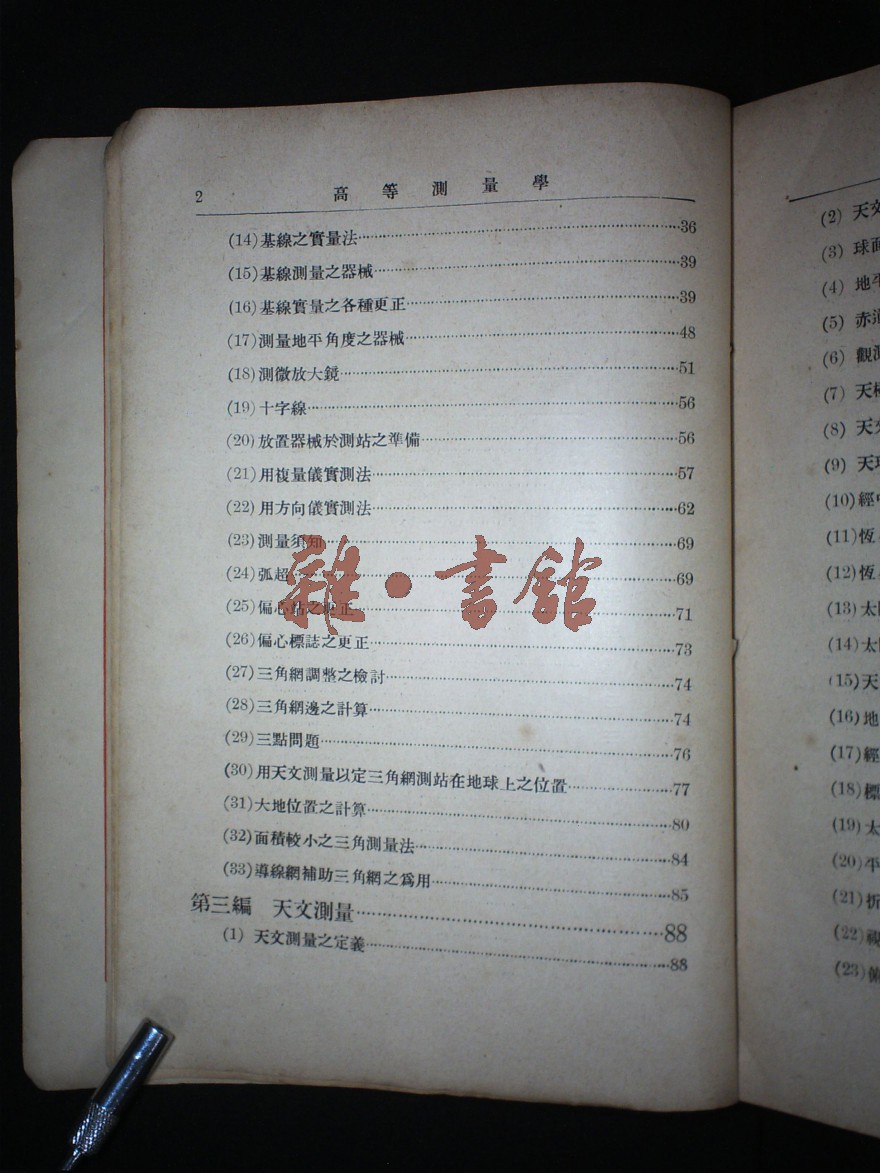 2 高等測量學
(14)基線之實量法……36
(15)基線測量之器械……39
(16)基線實量之各種更正……39
(17)測量地平角度之器械……48
(18)測微放大鏡……51
(19)十字線……56
(20)放置器械於測站之準備……56
(21)用複量儀實測法……57
(22)用方向儀實測法……62
(23)測量須知……69
(24)弧超……69
(25)偏心站之更正……71
(26)偏心標誌之更正……73
(27)三角網調整之檢討……74
(28)三角網邊之計算……74
(29)三點問題……76
(30)用天文測量以定三角網測站在地球上之位置……77
(31)大地位置之計算……80
(32)面積較小之三角測量法……84
(33)導線網補助三角網之爲用……85
第三編 天文測量……88
(1) 天文測量之定義……88
雜·書館
(2) 天
(3) 球面
(4) 地平
(5) 赤道
(6) 觀測
(7) 天
(8) 天
(9) 天
(10)經
(11)恆
(12)恆
(13)太
(14)太
(15)天
(16)地
(17)經
(18)標
(19)太
(20)平
(21)折
(22)視
(23)